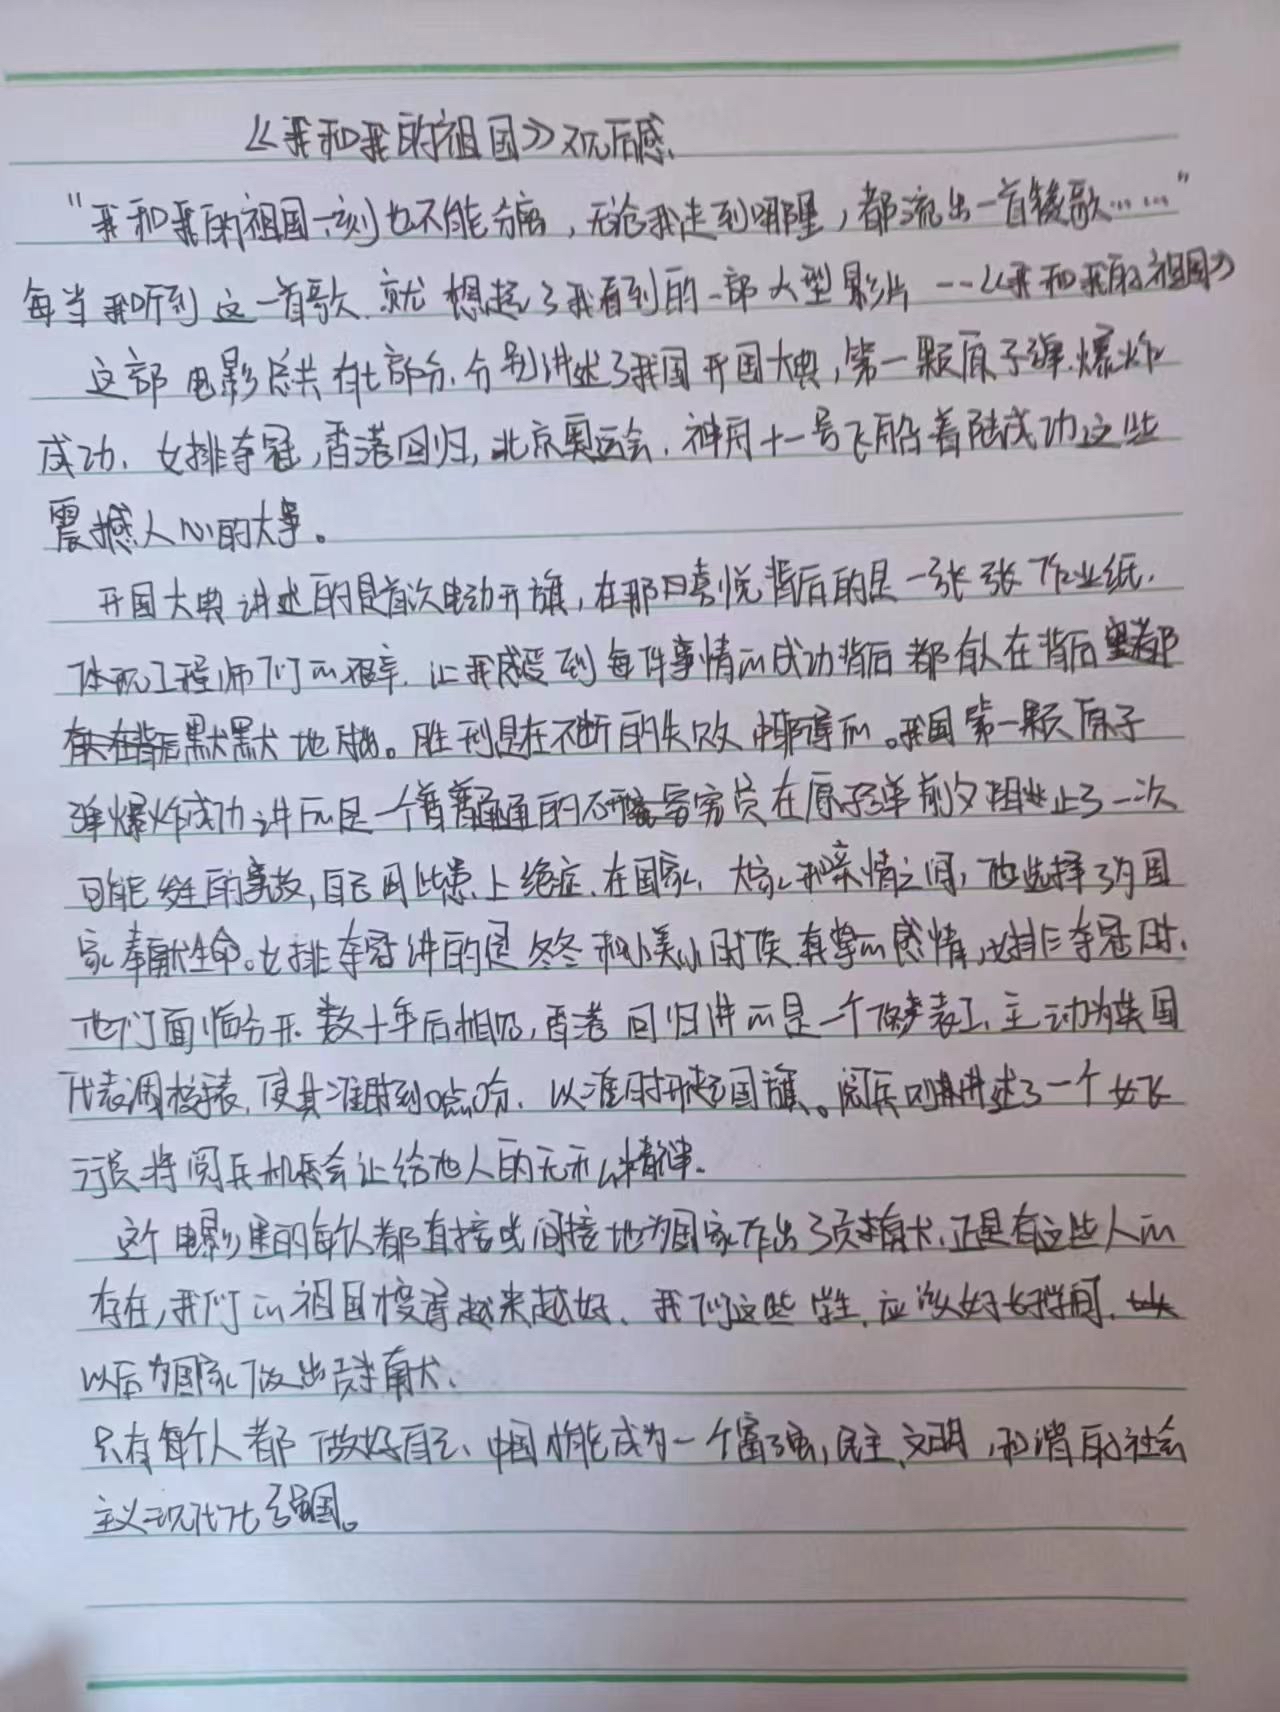 《我和我的祖国》观后感、
“我和我的祖国一刻也不能分离，无论我走到哪里，都流出一首赞歌……”
每当我听到这一首歌、就想起了我看到的一部大型影片--《我和我的祖国》
这部电影总共有七部分、分别讲述了我国开国大典，第一颗原子弹爆炸
成功、女排夺冠，香港回归，北京奥运会、神舟十一号飞船着陆成功这些
震撼人心的大事。
开国大典讲述的是首次电动升旗，在那日喜悦背后的是一张张作业纸、
体现工程师们的艰辛、让我感受到每件事情的成功背后都有人在背后
默默地付出。胜利是在不断的失败中取得的。我国第一颗原子
弹爆炸成功讲的是一个普普通通的研究员在原子弹前夕阻止了一次
可能发生的事故，自己因此患上绝症、在国家、大家和亲情之间，他选择了为国
家奉献生命。女排夺冠讲的是冬冬和小美小时侯真挚的感情，女排夺冠时、
他们面临分开、数十年后相见，香港回归讲的是一个修表工、主动为英国
代表调校表，使其准时到0点0分、以准时升起国旗。阅兵则讲述了一个女飞
行员将阅兵机会让给他人的无私精神。
这个电影里的每个人都直接或间接地为国家作出了贡献、正是有这些人的
存在，我们的祖国变得越来越好、我们这些学生、应该好好学习、
以后为国家做出贡献、
只有每个人都做好自己、中国才能成为一个富强，民主、文明，和谐的社会
主义现代化强国。